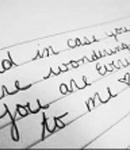 d in case you
are wondering
you are Every
to me ♡